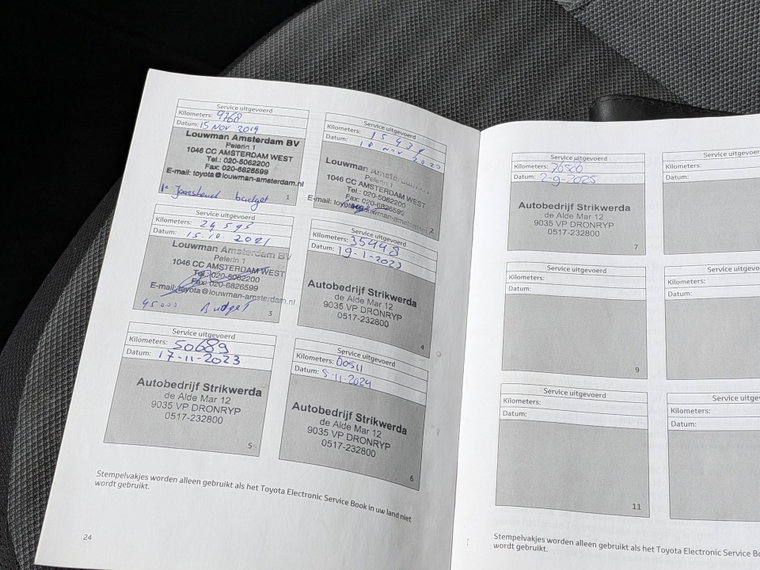 Service uitgevoerd
Kilometers: 9768
Datum: 15 Nov 2019
Louwman Amsterdam BV
Peierin 1
1046 CC AMSTERDAM WEST
Tel.: 020-5062200
Fax: 020-6826599
E-mail: toyota@louwman-amsterdam.nl
budget
1
Service uitgevoerd
Kilometers: 15 438
Datum: 18 Nov 2020
Louwman Amsterdam BV
Peierin 1
1046 CC AMSTERDAM WEST
Tel.: 020-5062200
Fax: 020-6826599
E-mail: toyota@louwman-amsterdam.nl
2
Service uitgevoerd
Kilometers: 24 595
Datum: 15.10 2021
Louwman Amsterdam BV
Peierin 1
1046 CC AMSTERDAM WEST
Tel.: 020-5062200
Fax: 020-6826599
E-mail: toyota@louwman-amsterdam.nl
45000 Budget
3
Service uitgevoerd
Kilometers: 35448
Datum: 19-1-2023
Autobedrijf Strikwerda
de Alde Mar 12
9035 VP DRONRYP
0517-232800
4
Service uitgevoerd
Kilometers: 50689
Datum: 17-11-2023
Autobedrijf Strikwerda
de Alde Mar 12
9035 VP DRONRYP
0517-232800
5
Service uitgevoerd
Kilometers:
Datum: 5-11-2024
Autobedrijf Strikwerda
de Alde Mar 12
9035 VP DRONRYP
0517-232800
6
Stempelvakjes worden alleen gebruikt als het Toyota Electronic Service Book in uw land niet
wordt gebruikt.
24
Service uitgevoerd
Kilometers: 70500
Datum: 2-9-2025
Autobedrijf Strikwerda
de Alde Mar 12
9035 VP DRONRYP
0517-232800
7
Service uitgevoerd
Kilometers:
Datum:
Service uitgevoerd
Kilometers:
Datum:
9
Service
Kilometers:
Datum:
Service uitgevoerd
Kilometers:
Datum:
11
Service uitgevo
Kilometers:
Datum:
Stempelvakjes worden alleen gebruikt als het Toyota Electronic Service Bo
wordt gebruikt.